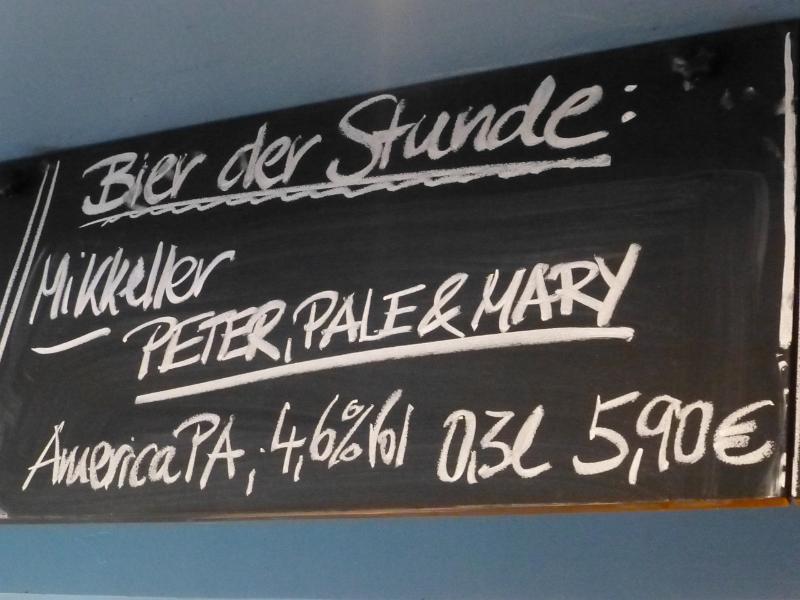 Bier der Stunde:
Mikkeller
PETER, PALE & MARY
AmericaPA, 4,6%Vol 0,3l 5,90€